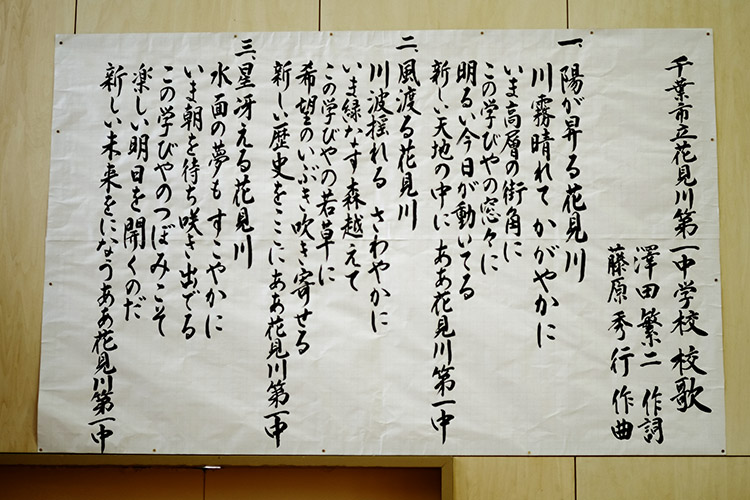 千葉市立花見川第一中学校 校歌
澤田繁二 作詞
藤原秀行 作曲
一、陽が昇る花見川
川霧晴れてかがやかに
いま高層の街角に
この学びやの窓々に
明るい今日が動いてる
新しい天地の中に ああ花見川第一中
二、風渡る花見川
川波揺れる さわやかに
いま緑なす森越えて
この学びやの若草に
希望のいぶき吹き寄せる
新しい歴史をここに ああ花見川第一中
三、星冴える花見川
水面の夢もすこやかに
いま朝を待ち咲き出でる
この学びやのつぼみこそ
楽しい明日を開くのだ
新しい未来をになう ああ花見川第一中